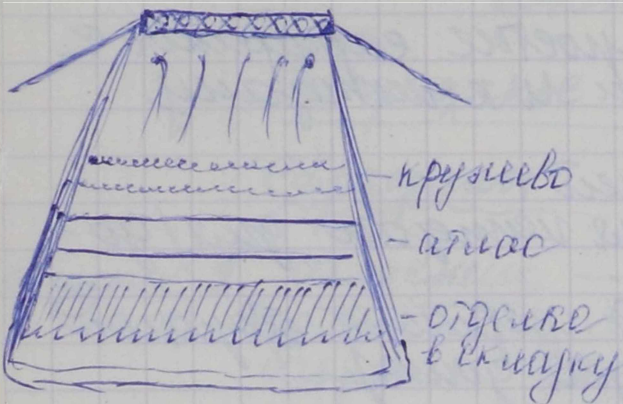 кружево
атлас
отделка
в складку